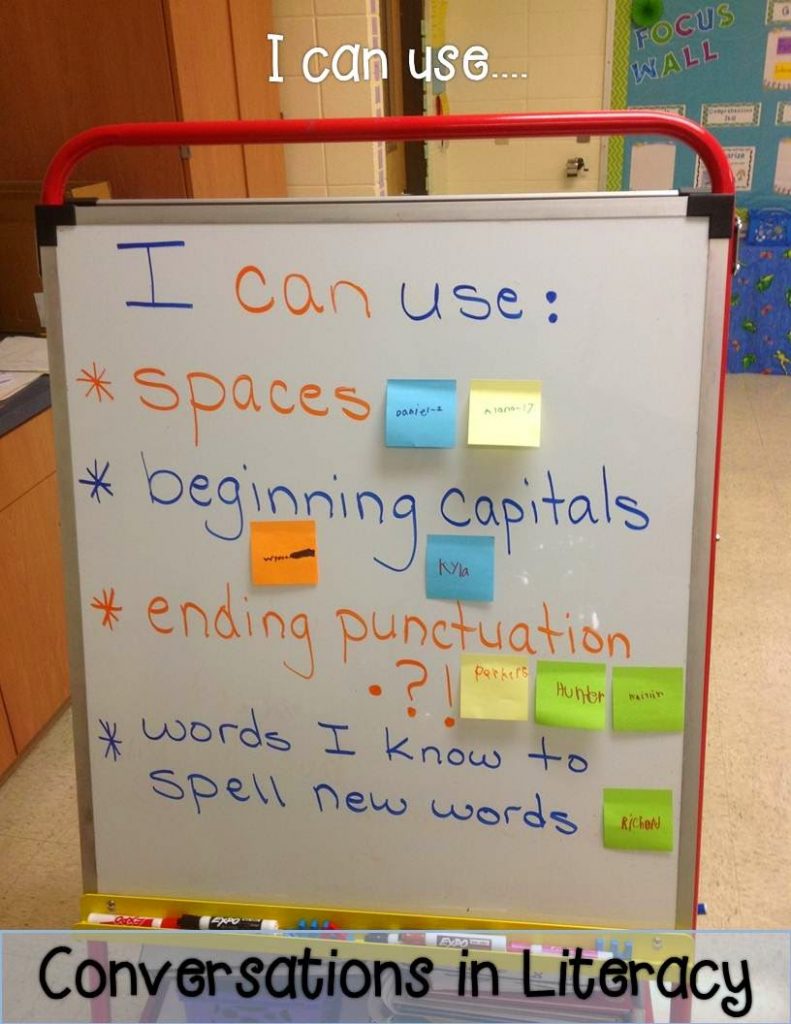 I can use....
FOCUS
WALL
I can use:
* spaces
Daniel-2
* beginning capitals
Kyla
* ending punctuation
. ? !
Parkers
Hunter
* words I know to
spell new words
Richard
EXPO
EXPO
EXPO
Conversations in Literacy